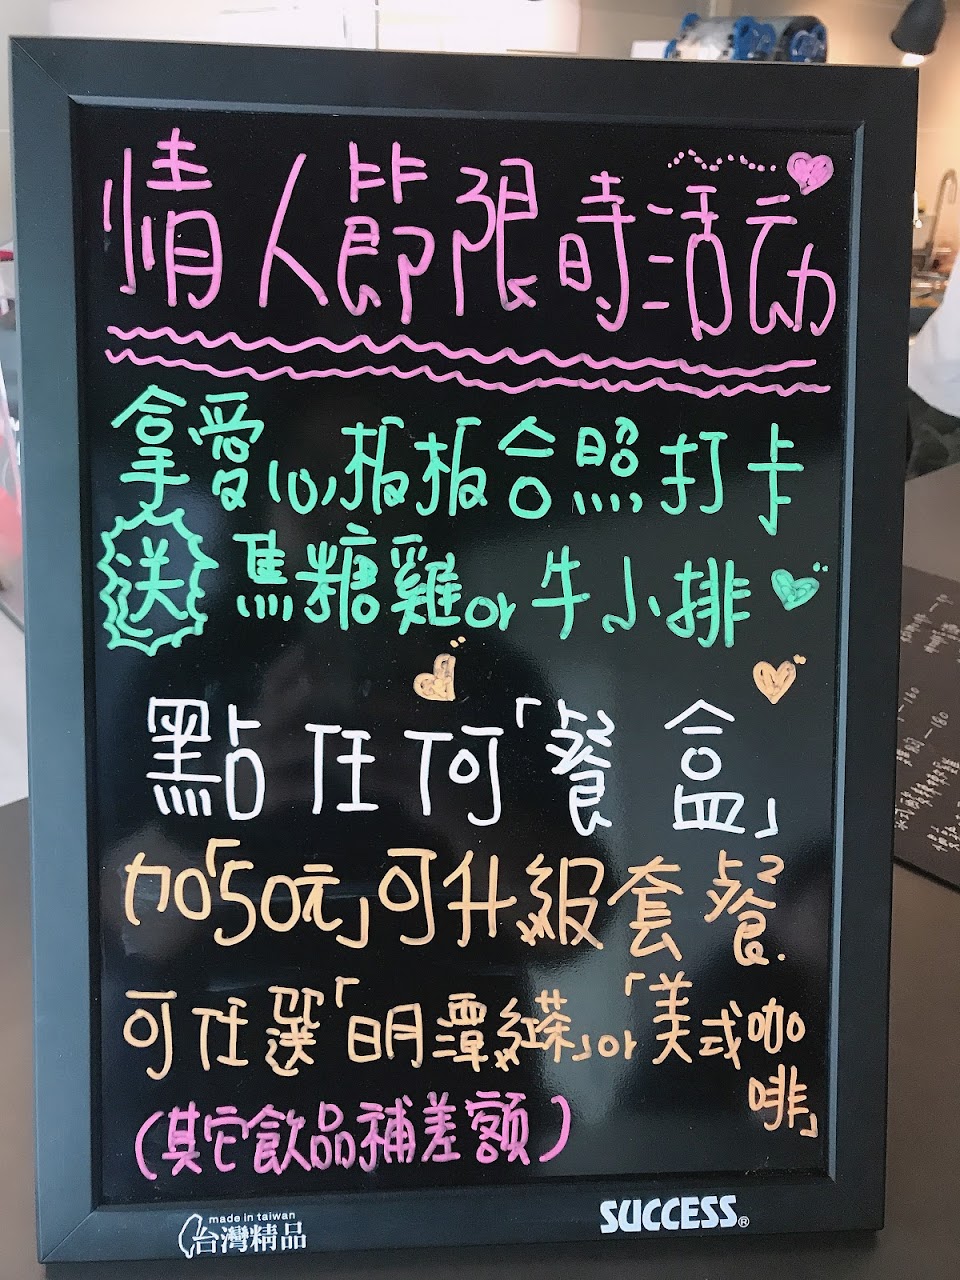 情人節限時活动
拿愛心板板合照打卡
送 焦糖雞or牛小排
點任何「餐盒」
加「50元」可升級套餐.
可任選「日月潭紅茶」or「美式咖啡」
(其它飲品補差額)
made in taiwan
台灣精品
SUCCESS®